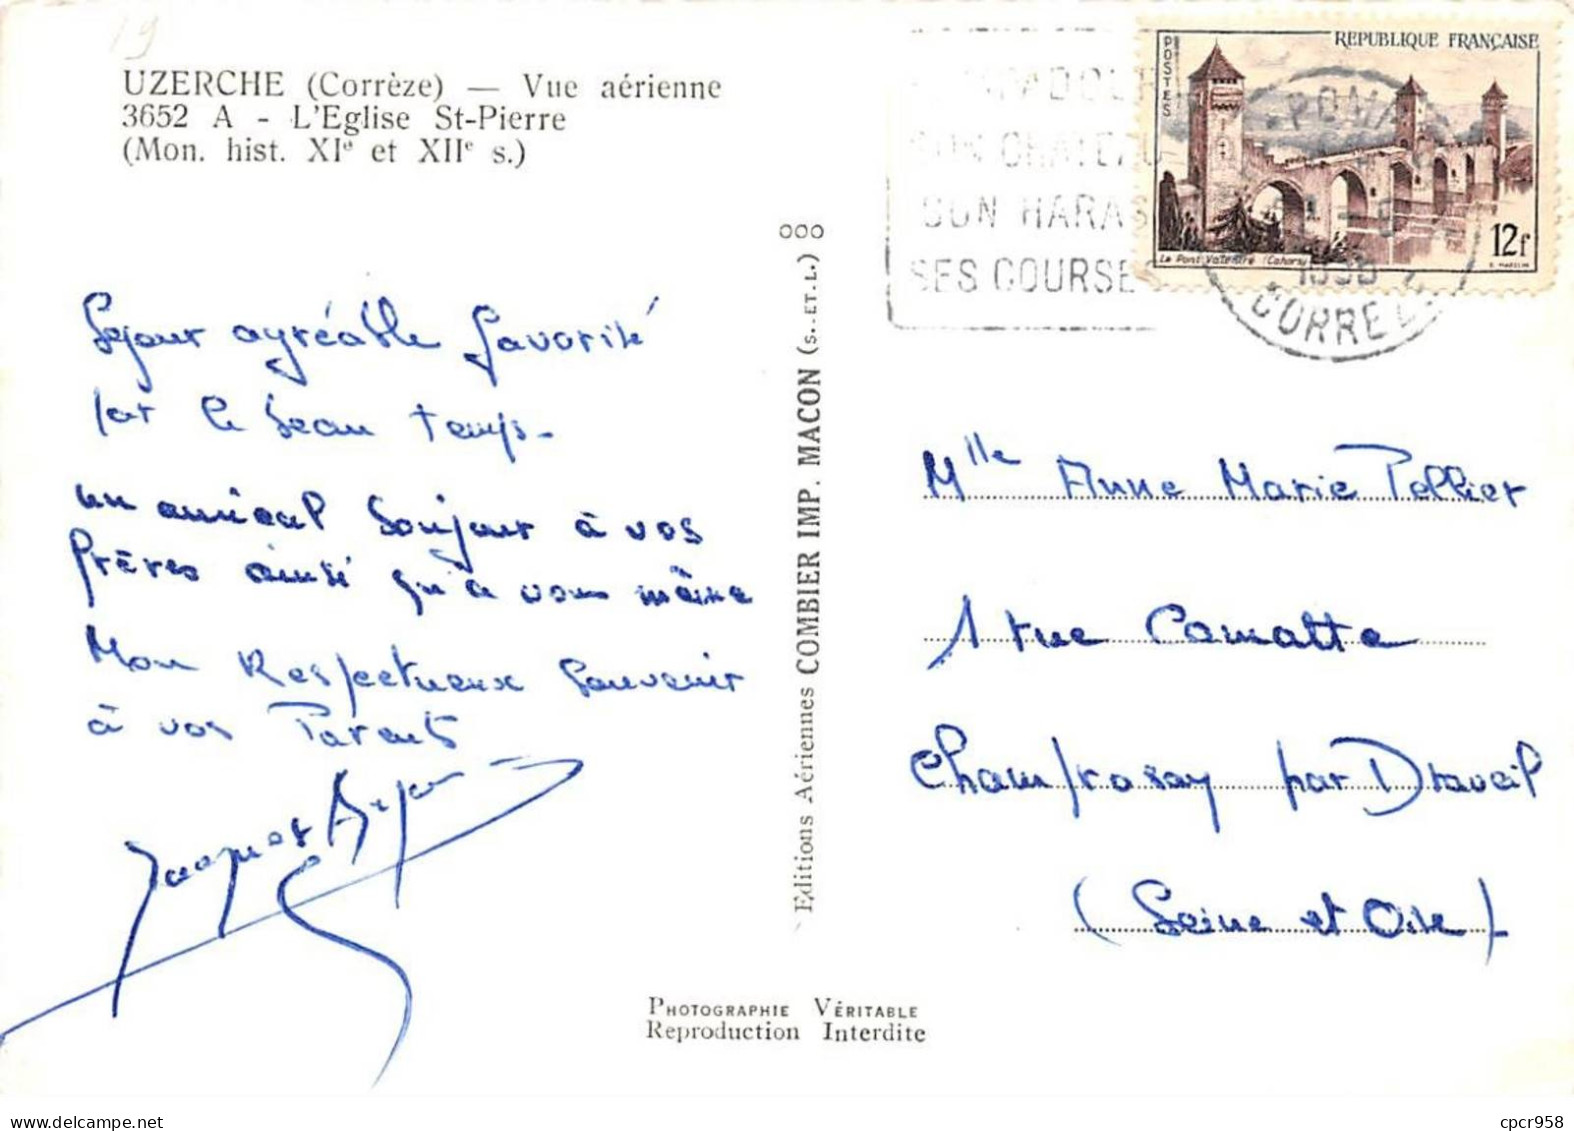 19
UZERCHE (Corrèze) — Vue aérienne
3652 A - L'Eglise St-Pierre
(Mon. hist. XIe et XIIe s.)
Séjour agréable favorisé
par le beau temps -
un amical bonjour à vos
frères ainsi qu'à vous même
Mon Respectueux Souvenir
à vos Parents
Jacques
Editions Aériennes COMBIER IMP. MACON (S.-ET-L.)
PHOTOGRAPHIE VÉRITABLE
Reproduction Interdite
SON CHATEAU
SON HARAS
SES COURSES
POSTES
REPUBLIQUE FRANÇAISE
Le Pont Valentré (Cahors)
12f
POMPA
CORREZE
Mlle Anne Marie Pellier
1 rue
Champrosay par Draveil
(Seine et Oise)
cpcr958